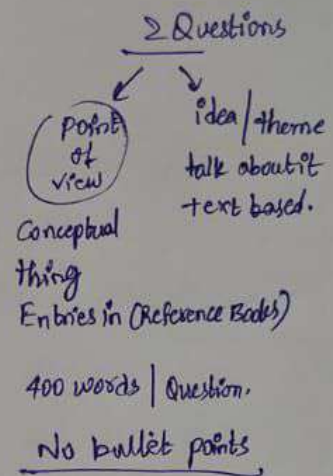 2 Questions
Point
of
view
idea / theme
talk about it
text based.
Conceptual
thing
Entries in (Reference Books)
400 words | Question.
No bullet points